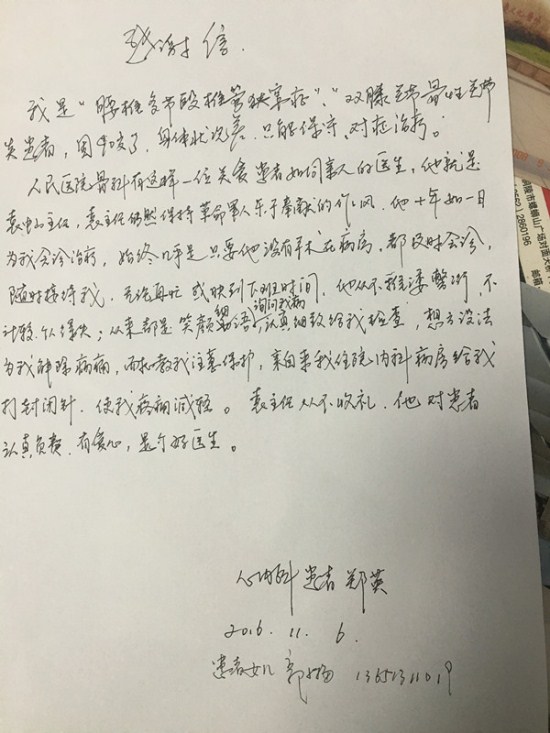 感谢信
我是“腰椎多节段椎管狭窄症”、“双膝关节骨性关节
炎患者,因年岁了,身体状况差,只能保守、对症治疗。
人民医院骨科有这样一位关爱患者如同亲人的医生,他就是
袁中山主任,袁主任仍然保持革命军人乐于奉献的作风。他十年如一日
为我会诊治疗,始终几乎是只要他没有手术在病房,都及时会诊,
随时接待我,无论再忙或映到下班时间,他从不推诿繁衍,不
计较个人得失;从来都是笑颜细语询问我病、认真细致给我检查,想方设法
为我解除病痛,而且教我注意保护,亲自来我住院内科病房给我
打封闭针,使我疼痛减轻。袁主任从不收礼,他对患者
认真负责,有爱心,是个好医生。
心内科 患者 郑英
2016. 11. 6.
患者女儿 郭扬 13651311019